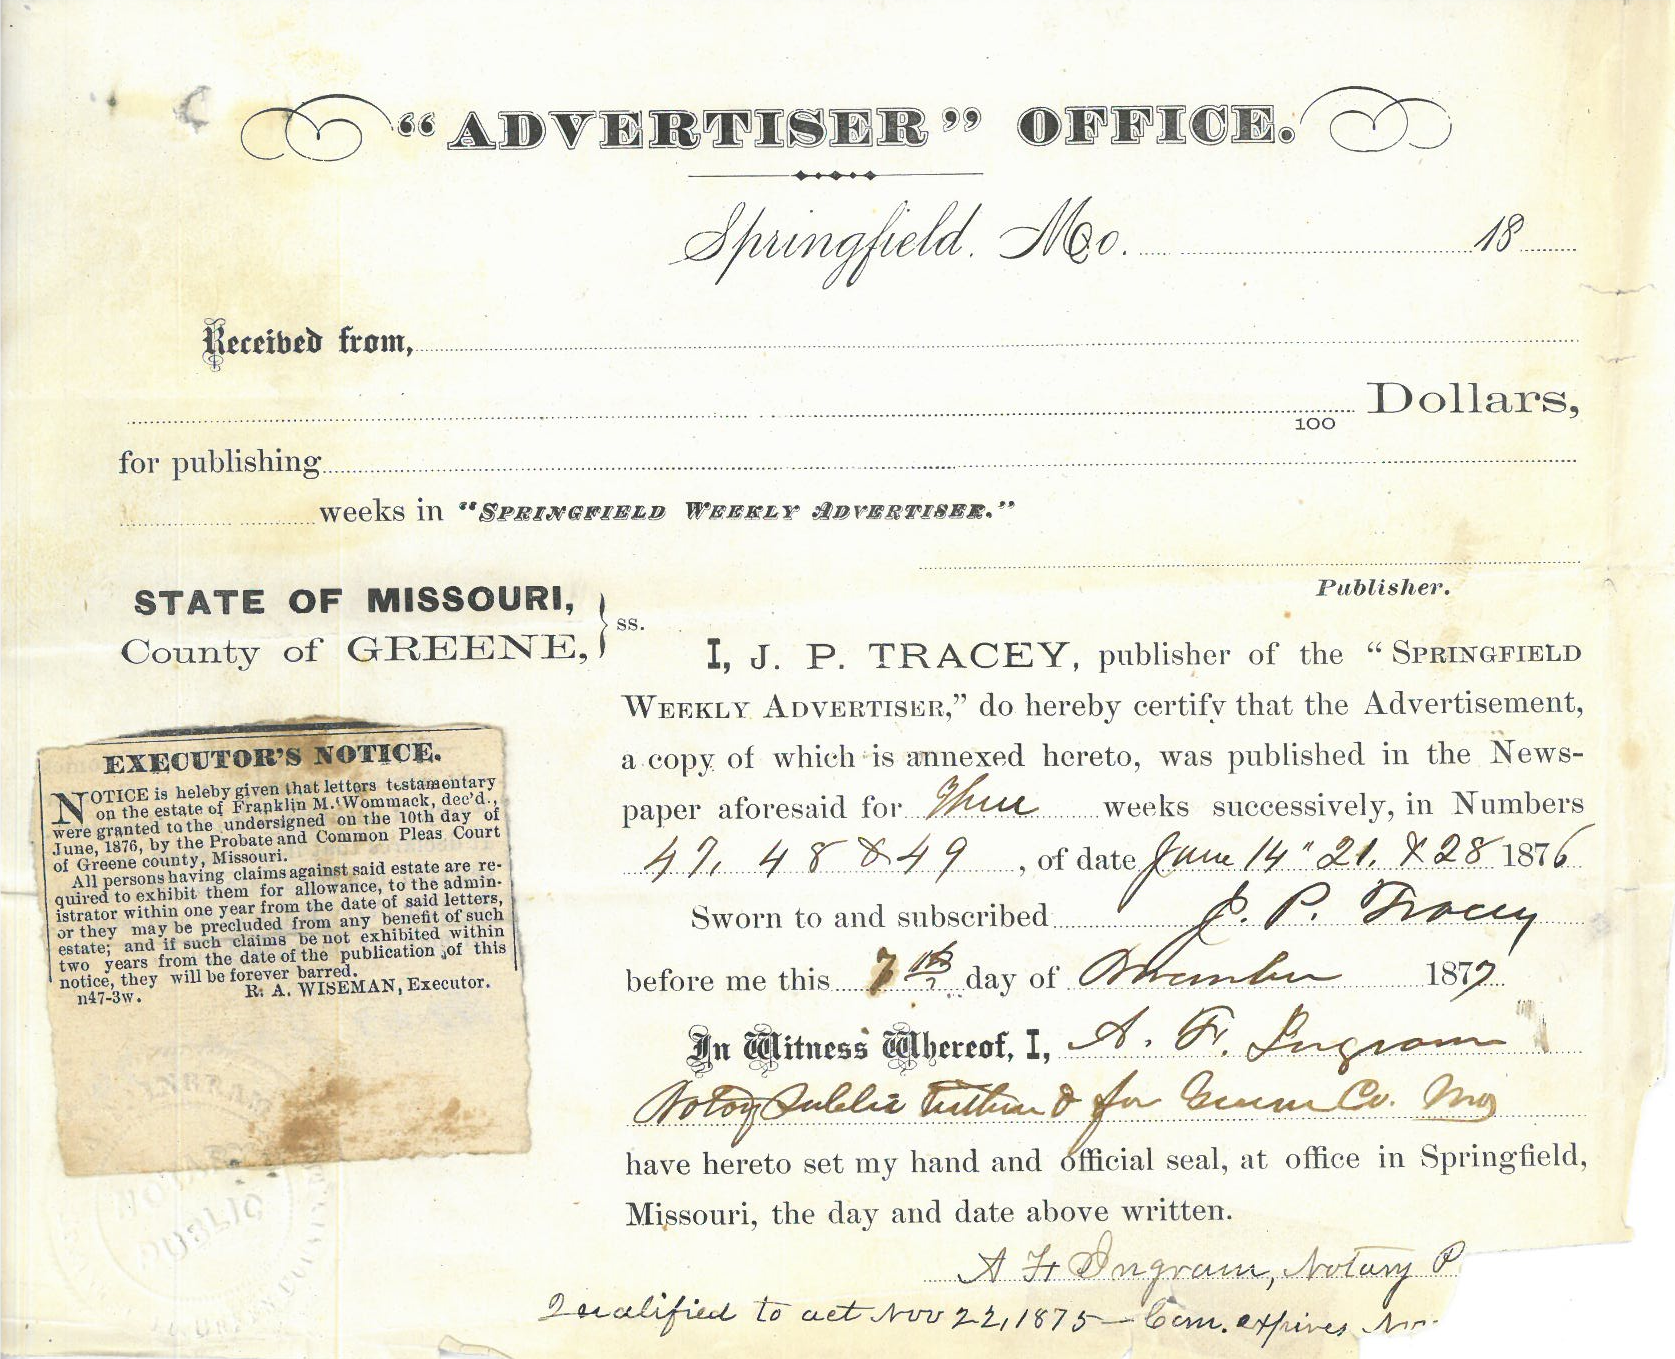 "ADVERTISER" OFFICE.
Springfield. Mo. 18
Received from,
100 Dollars,
for publishing
weeks in "SPRINGFIELD WEEKLY ADVERTISER."
Publisher.
STATE OF MISSOURI,
County of GREENE, } ss.
I, J. P. TRACEY, publisher of the "SPRINGFIELD
WEEKLY ADVERTISER," do hereby certify that the Advertisement,
a copy of which is annexed hereto, was published in the News-
paper aforesaid for Three weeks successively, in Numbers
47, 48 & 49, of date June 14" 21, & 28 1876
Sworn to and subscribed J. P. Tracey
before me this 7th day of December 1877
In Witness Whereof, I, A. F. Ingram
Notary Public within & for Greene Co. Mo
have hereto set my hand and official seal, at office in Springfield,
Missouri, the day and date above written.
A F Ingram, Notary P
Qualified to act Nov 22, 1875 — Com. expires Nov
EXECUTOR'S NOTICE.
NOTICE is heleby given that letters testamentary
on the estate of Franklin M. Wommack, dec'd.,
were granted to the undersigned on the 10th day of
June, 1876, by the Probate and Common Pleas Court
of Greene county, Missouri.
All persons having claims against said estate are re-
quired to exhibit them for allowance, to the admin-
istrator within one year from the date of said letters,
or they may be precluded from any benefit of such
estate; and if such claims be not exhibited within
two years from the date of the publication of this
notice, they will be forever barred.
n47-3w. R. A. WISEMAN, Executor.
INGRAM
NOTARY
PUBLIC